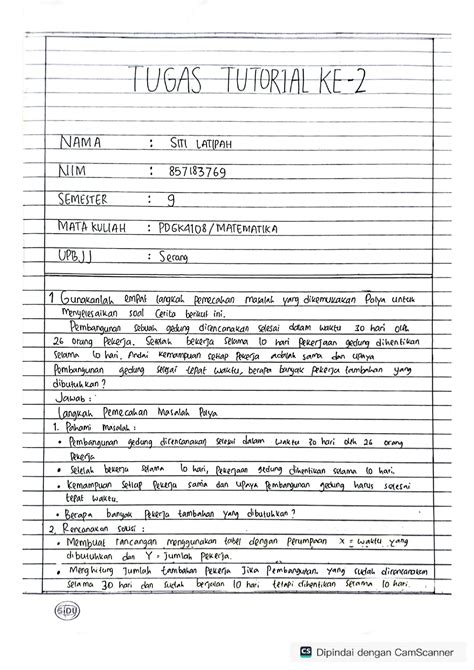 TUGAS TUTORIAL KE-2
NAMA : SITI LATIPAH
NIM : 857183769
SEMESTER : 9
MATA KULIAH : PDGK4108/MATEMATIKA
UPBJJ : Serang
1 Gunakanlah empat langkah pemecahan masalah yang dikemukakan Polya untuk
menyelesaikan soal cerita berikut ini.
Pembangunan sebuah gedung direncanakan selesai dalam waktu 30 hari oleh
26 orang pekerja. Setelah bekerja selama 10 hari pekerjaan gedung dihentikan
selama 10 hari. Andai kemampuan setiap pekerja adalah sama dan upaya
Pembangunan gedung selesai tepat waktu, berapa banyak pekerja tambahan yang
dibutuhkan?
Jawab:
Langkah Pemecahan Masalah Polya
1. Pahami masalah:
• Pembangunan gedung direncanakan selesai dalam waktu 30 hari oleh 26 orang
Pekerja
• Setelah bekerja selama 10 hari, pekerjaan gedung dihentikan selama 10 hari.
• Kemampuan setiap pekerja sama dan upaya pembangunan gedung harus selesai
tepat waktu.
• Berapa banyak pekerja tambahan yang dibutuhkan?
2. Rencanakan solusi:
• Membuat rancangan menggunakan tabel dengan perumpaan X = waktu yang
dibutuhkan dan Y = Jumlah pekerja.
• Menghitung jumlah tambahan pekerja jika pembangunan yang sudah direncanakan
selama 30 hari dan sudah berjalan 10 hari tetapi dihentikan selama 10 hari.
SIDU
CS Dipindai dengan CamScanner